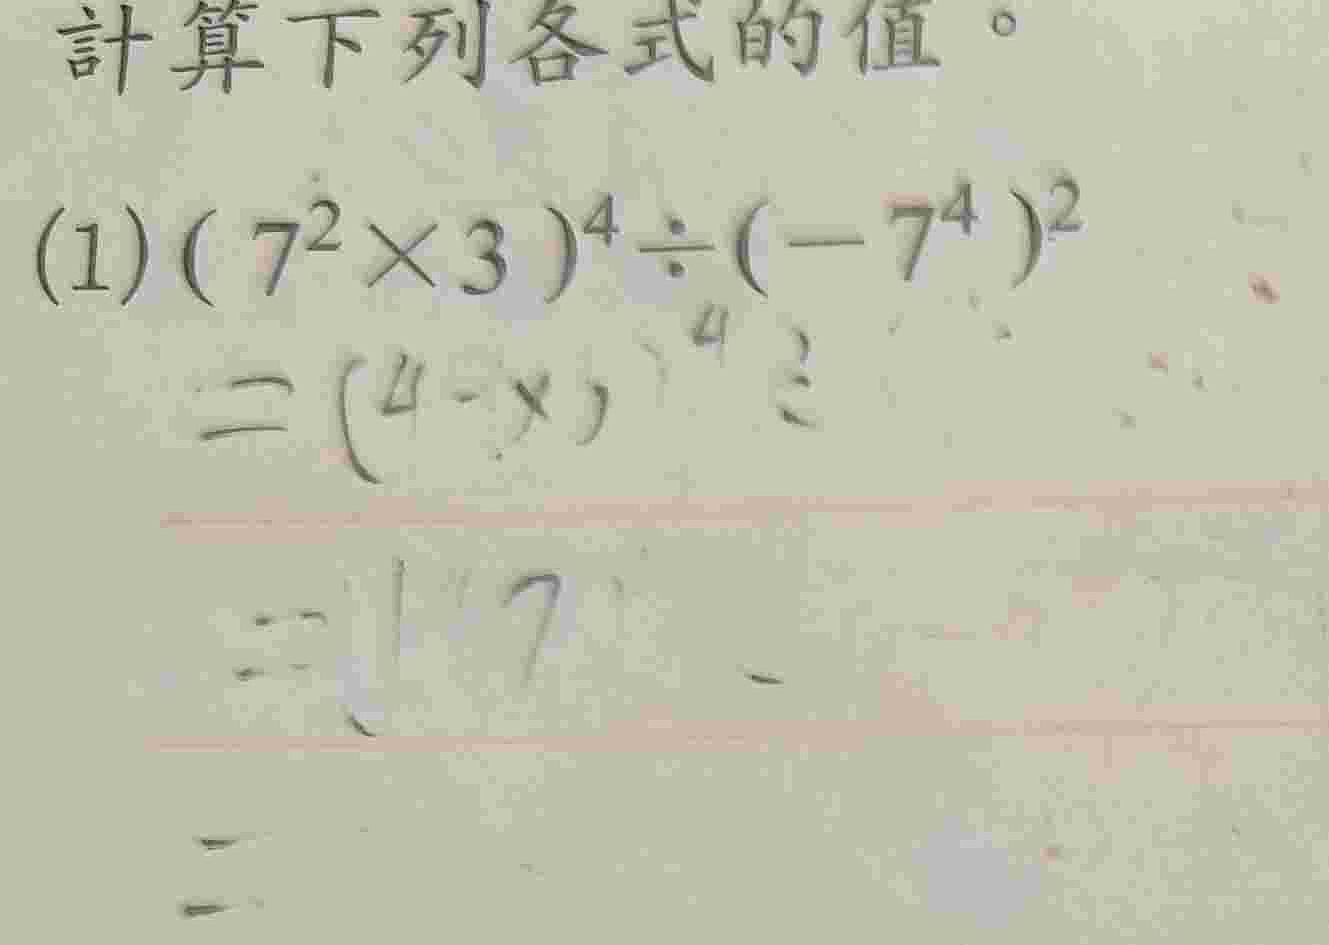 計算下列各式的值。
(1) ( 7² × 3 )⁴ ÷ ( − 7⁴ )²
= (4 - x)⁴ ÷
= ( 7
=